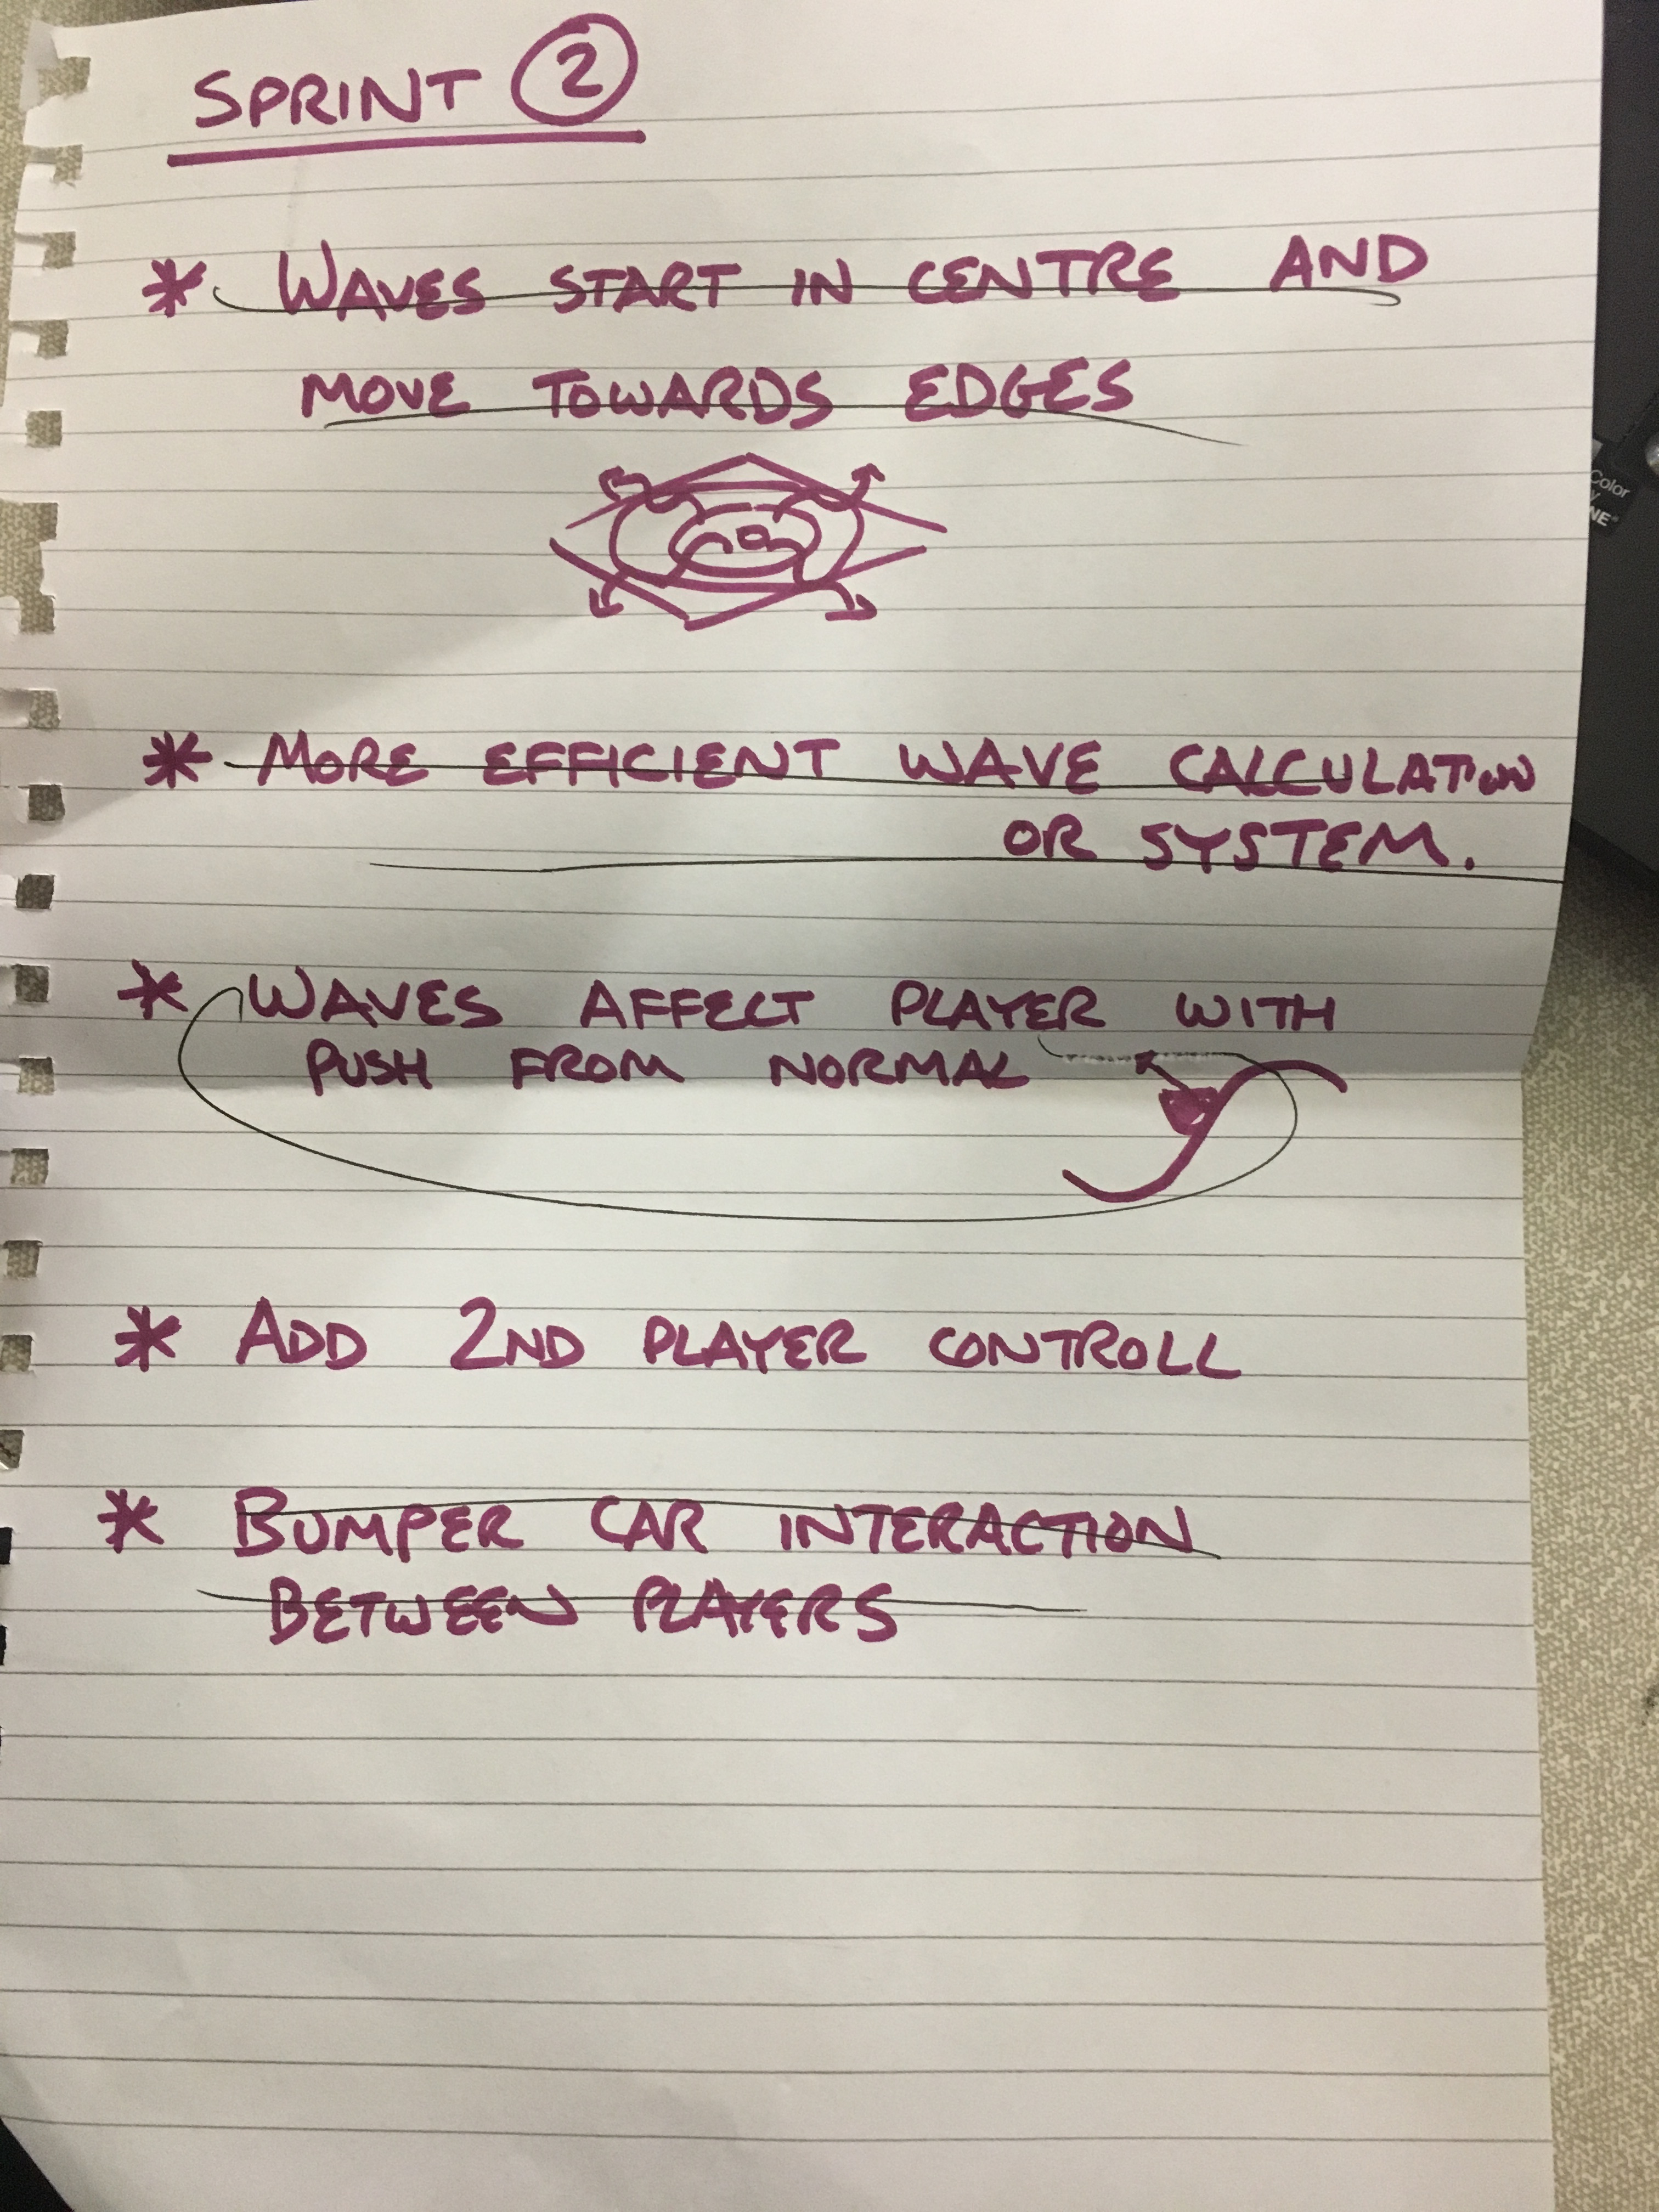 SPRINT 2
* WAVES START IN CENTRE AND
MOVE TOWARDS EDGES
* MORE EFFICIENT WAVE CALCULATION
OR SYSTEM.
* WAVES AFFECT PLAYER WITH
PUSH FROM NORMAL
* ADD 2ND PLAYER CONTROLL
* BUMPER CAR INTERACTION
BETWEEN PLAYERS
Color